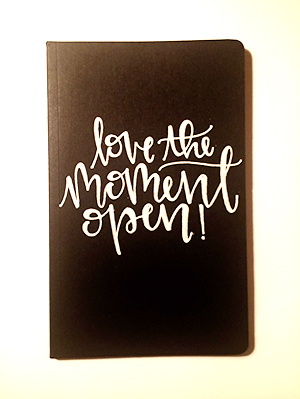 love the
moment
open!